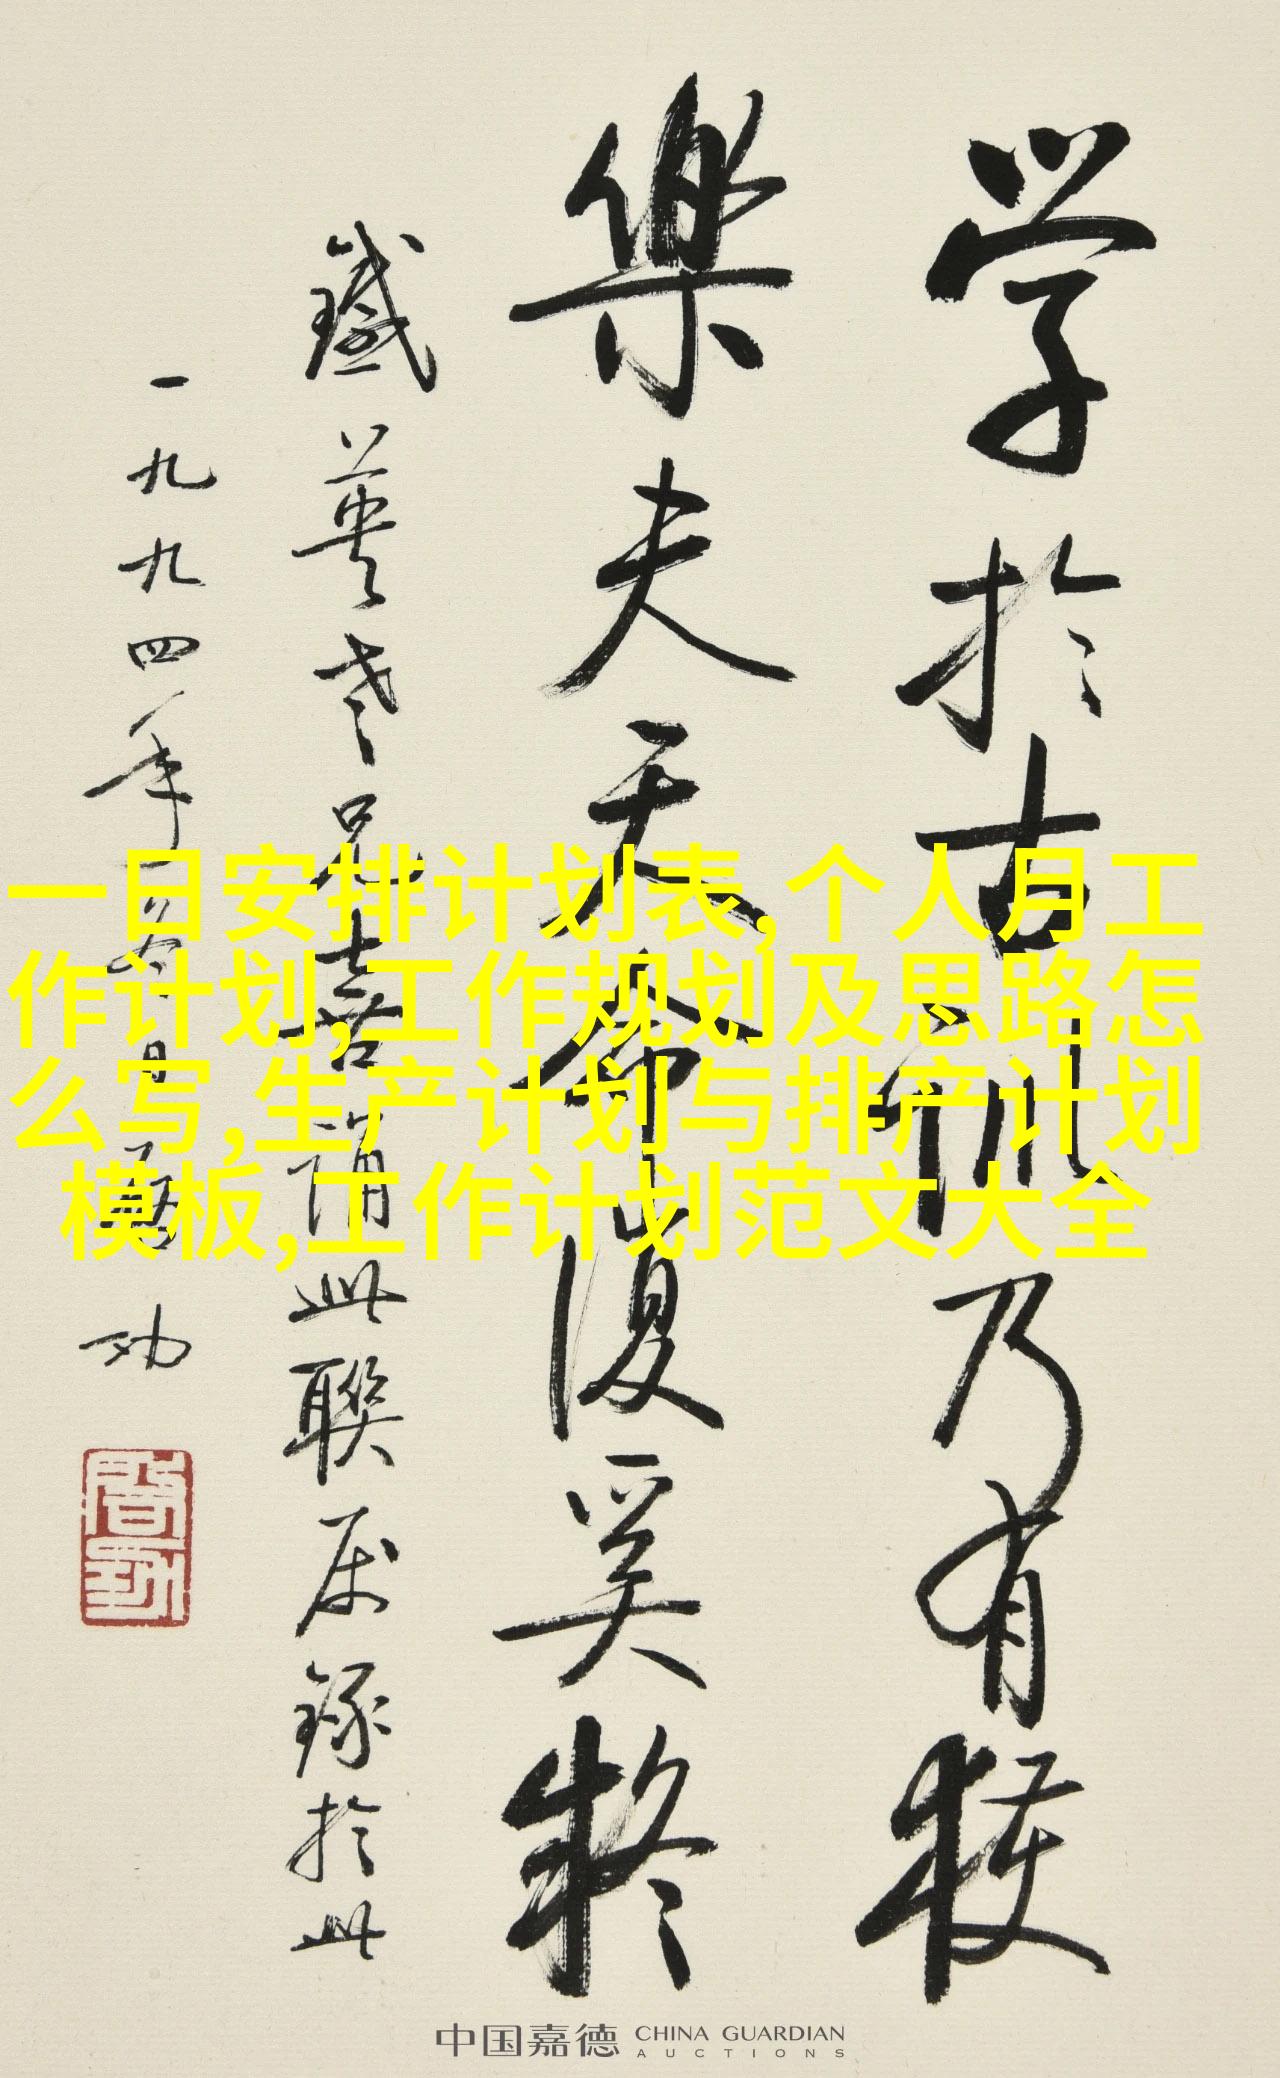 学於古训乃有获
樂夫天命复奚疑
鐵英老兄喜誦此联属録於此
一九九四年
功
一日安排计划表,个人月工
作计划,工作规划及思路怎
么写,生产计划与排产计划
模板,工作计划范文大全
中国嘉德 CHINA GUARDIAN
AUCTIONS